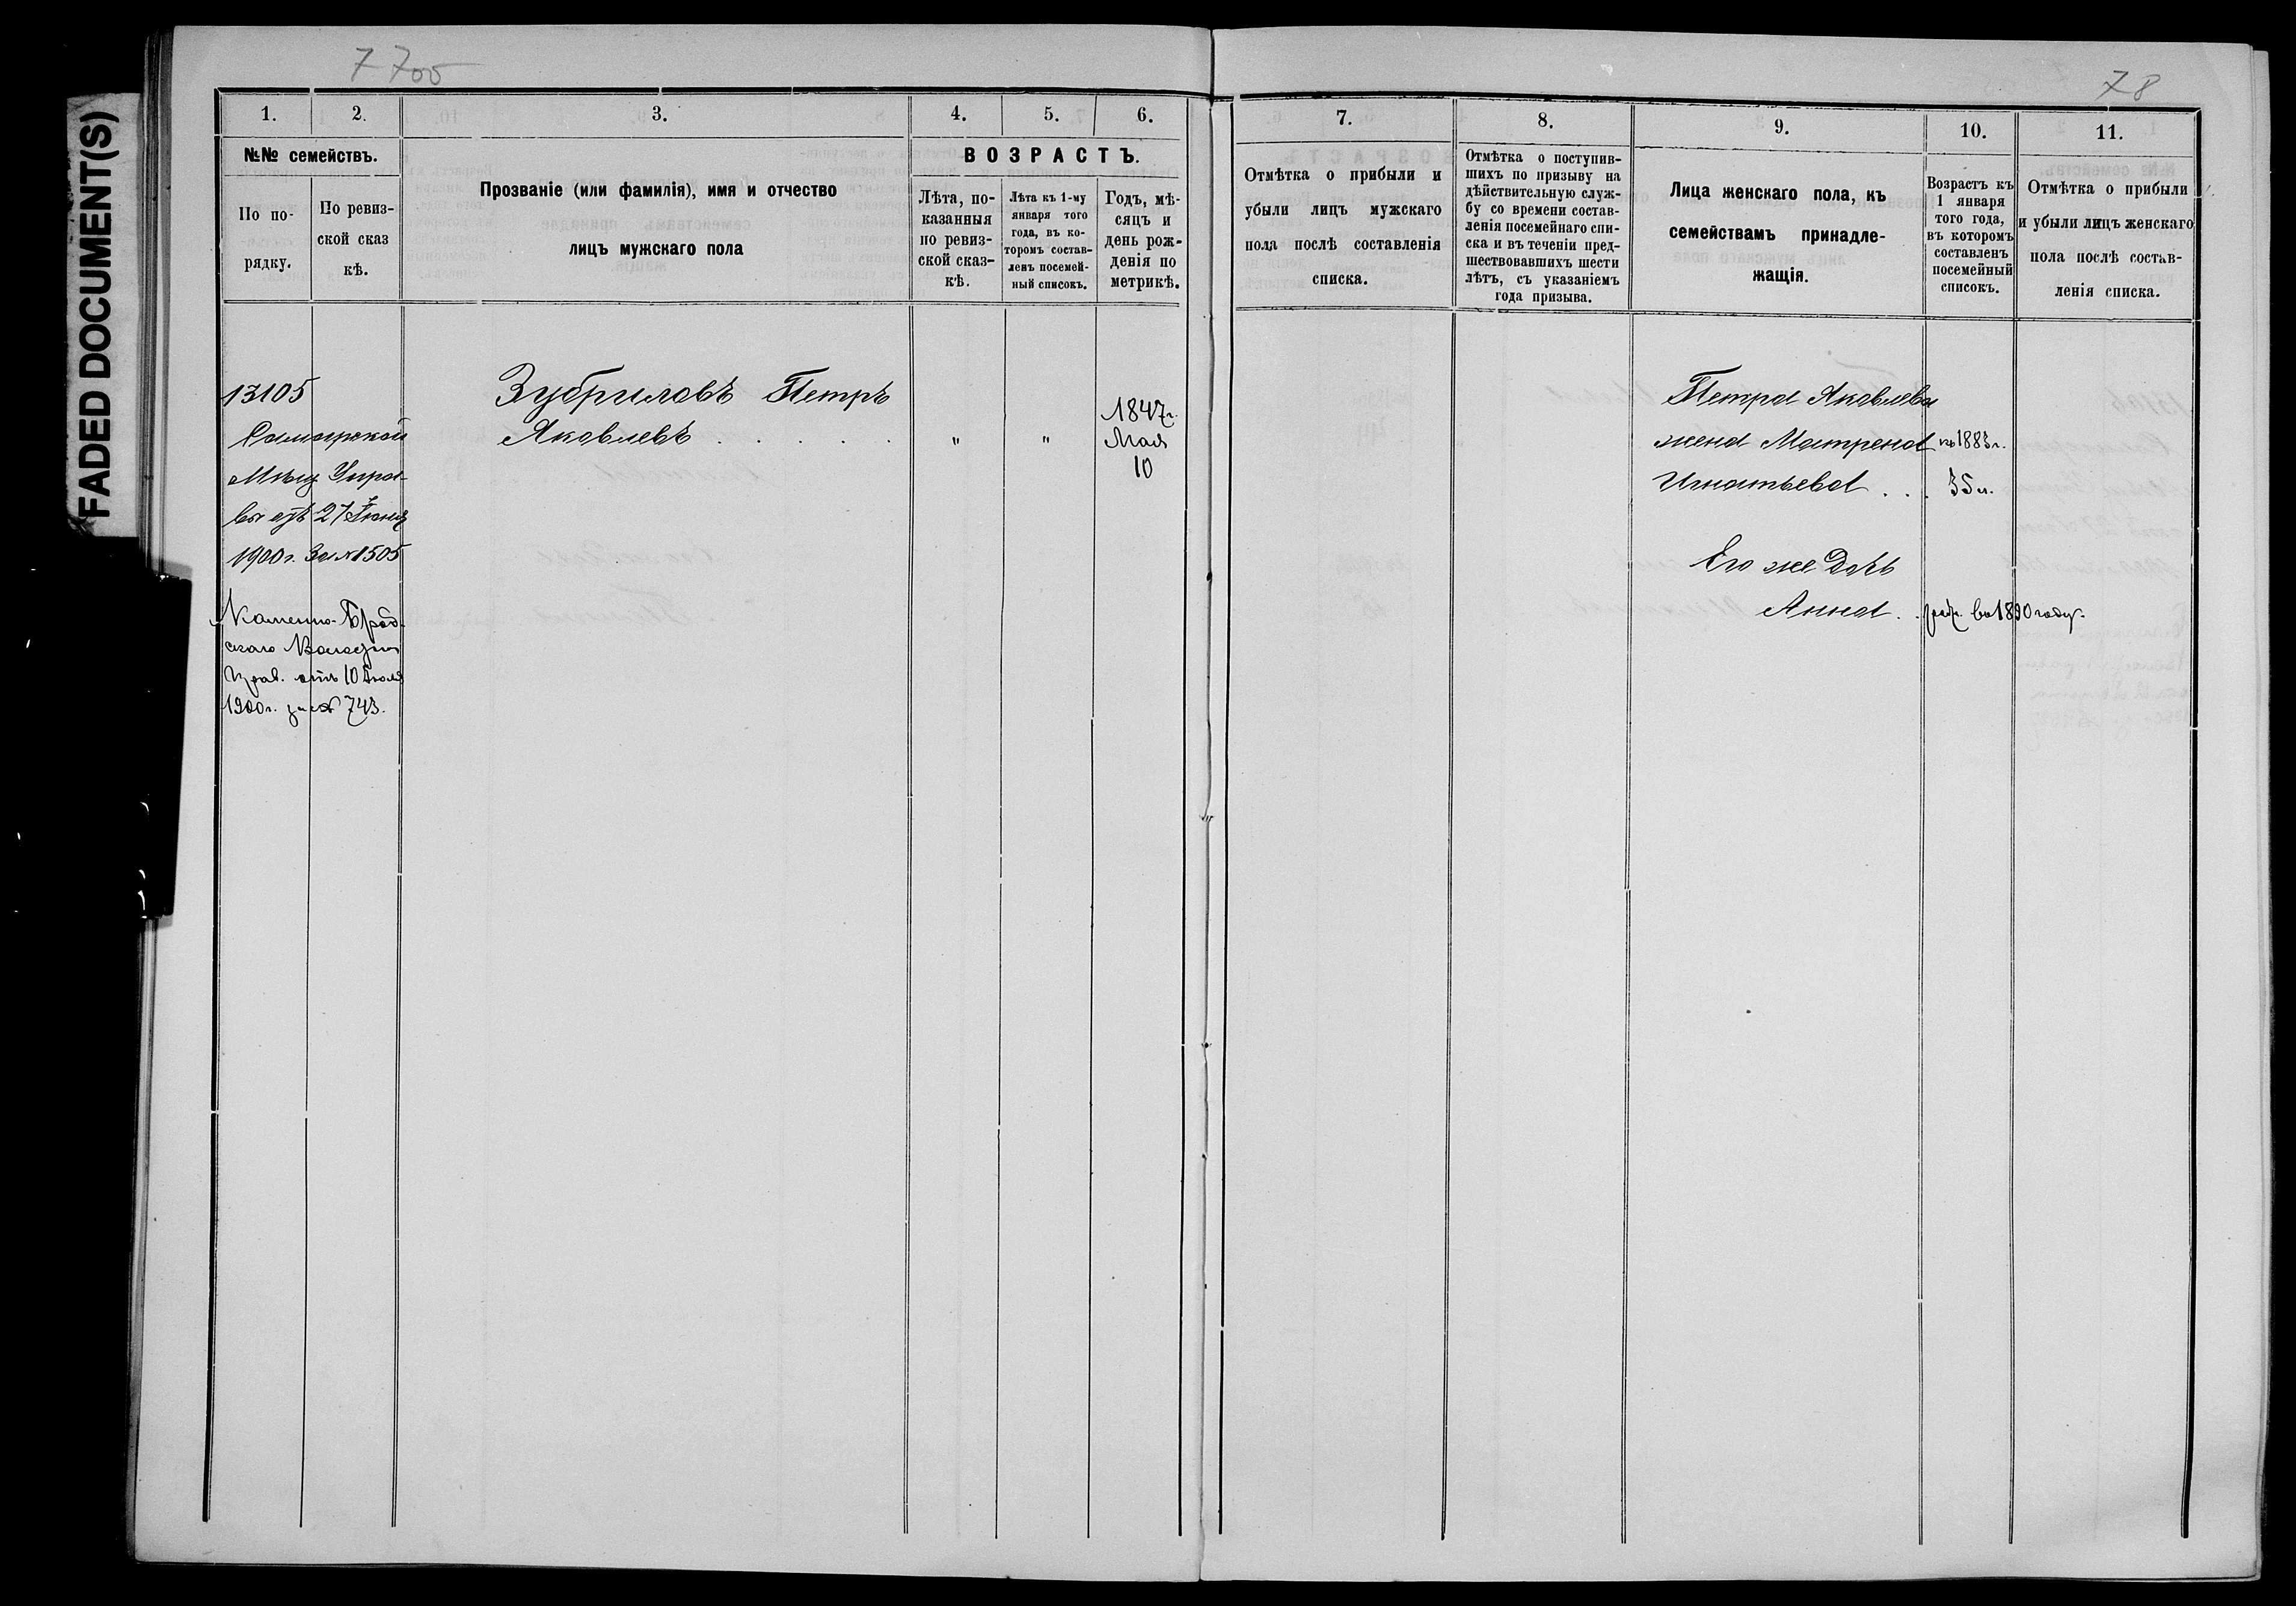 FADED DOCUMENT(S)
7700
78
1.
2.
3.
4.
5.
6.
№№ семействъ.
По по-
рядку.
По ревиз-
ской сказ
кѣ.
Прозваніе (или фамилія), имя и отчество
лицъ мужскаго пола
ВОЗРАСТЪ.
Лѣта, по-
казанныя
по ревиз-
ской сказ-
кѣ.
Лѣта къ 1-му
января того
года, въ ко-
торомъ состав-
ленъ посемей-
ный списокъ.
Годъ, мѣ-
сяцъ и
день рож-
денія по
метрикѣ.
13105
Самарской
Мѣщ. Упра-
вы отъ 27 Іюня
1900 г. За № 1505
Каменно-Брод-
скаго Волостн.
Прав. отъ 10 Іюля
1900 г. за № 743.
Зубриловъ Петръ
Яковлевъ . . . . .
"
"
1847 г.
Мая
10
7.
8.
9.
10.
11.
Отмѣтка о прибыли и
убыли лицъ мужскаго
пола послѣ составленія
списка.
Отмѣтка о поступив-
шихъ по призыву на
дѣйствительную служ-
бу со времени состав-
ленія посемейнаго спи-
ска и въ теченіи пред-
шествовавшихъ шести
лѣтъ, съ указаніемъ
года призыва.
Лица женскаго пола, къ
семействамъ принадле-
жащія.
Возрастъ къ
1 января
того года,
въ которомъ
составленъ
посемейный
списокъ.
Отмѣтка о прибыли
и убыли лицъ женскаго
пола послѣ состав-
ленія списка.
Петра Яковлева
жена Матрена къ 1883 г.
Игнатьева . . . 35 л.
Его же дочь
Анна . . род. въ 1890 году.